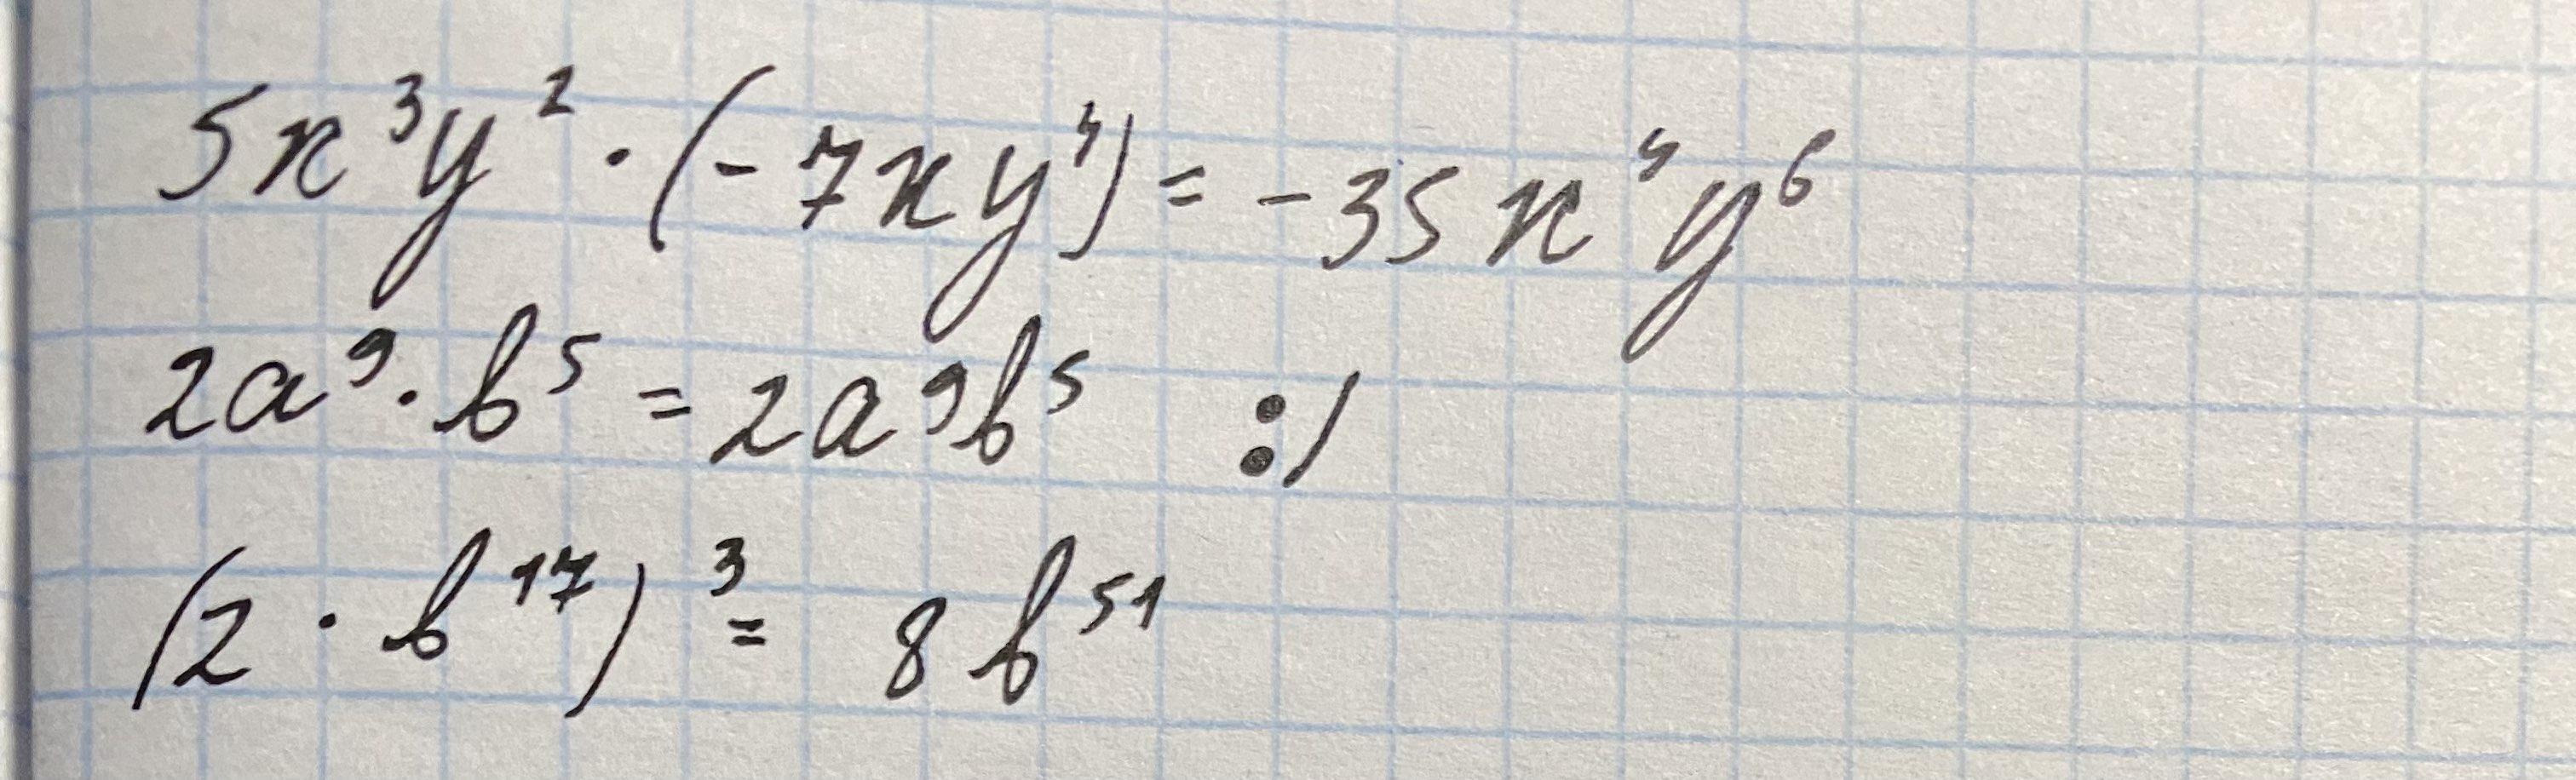 5x³y² · (-7xy⁴) = -35x⁴y⁶
2a⁹ · b⁵ = 2a⁹b⁵ :)
(2 · b¹⁷)³ = 8b⁵¹